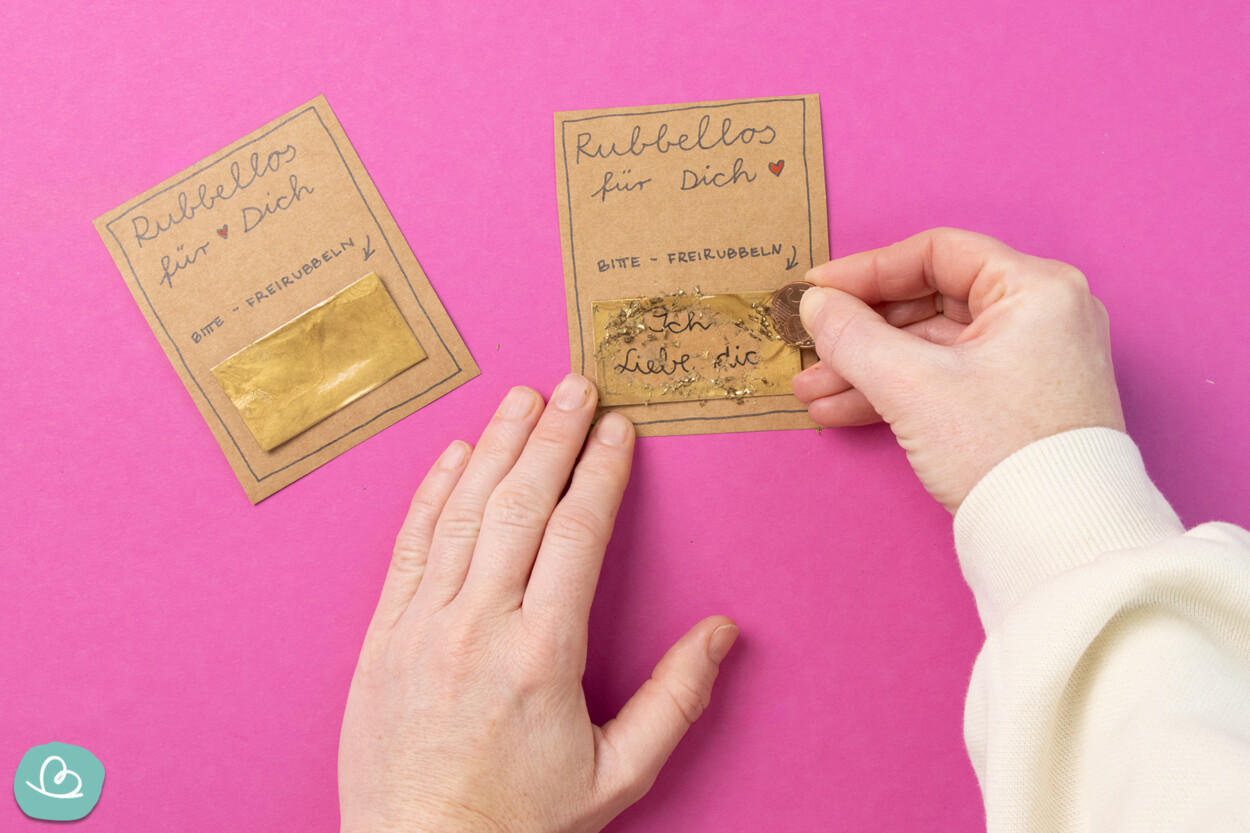 Rubbellos
für Dich
BITTE - FREIRUBBELN
Rubbellos
für Dich
BITTE - FREIRUBBELN
Ich
Liebe dic